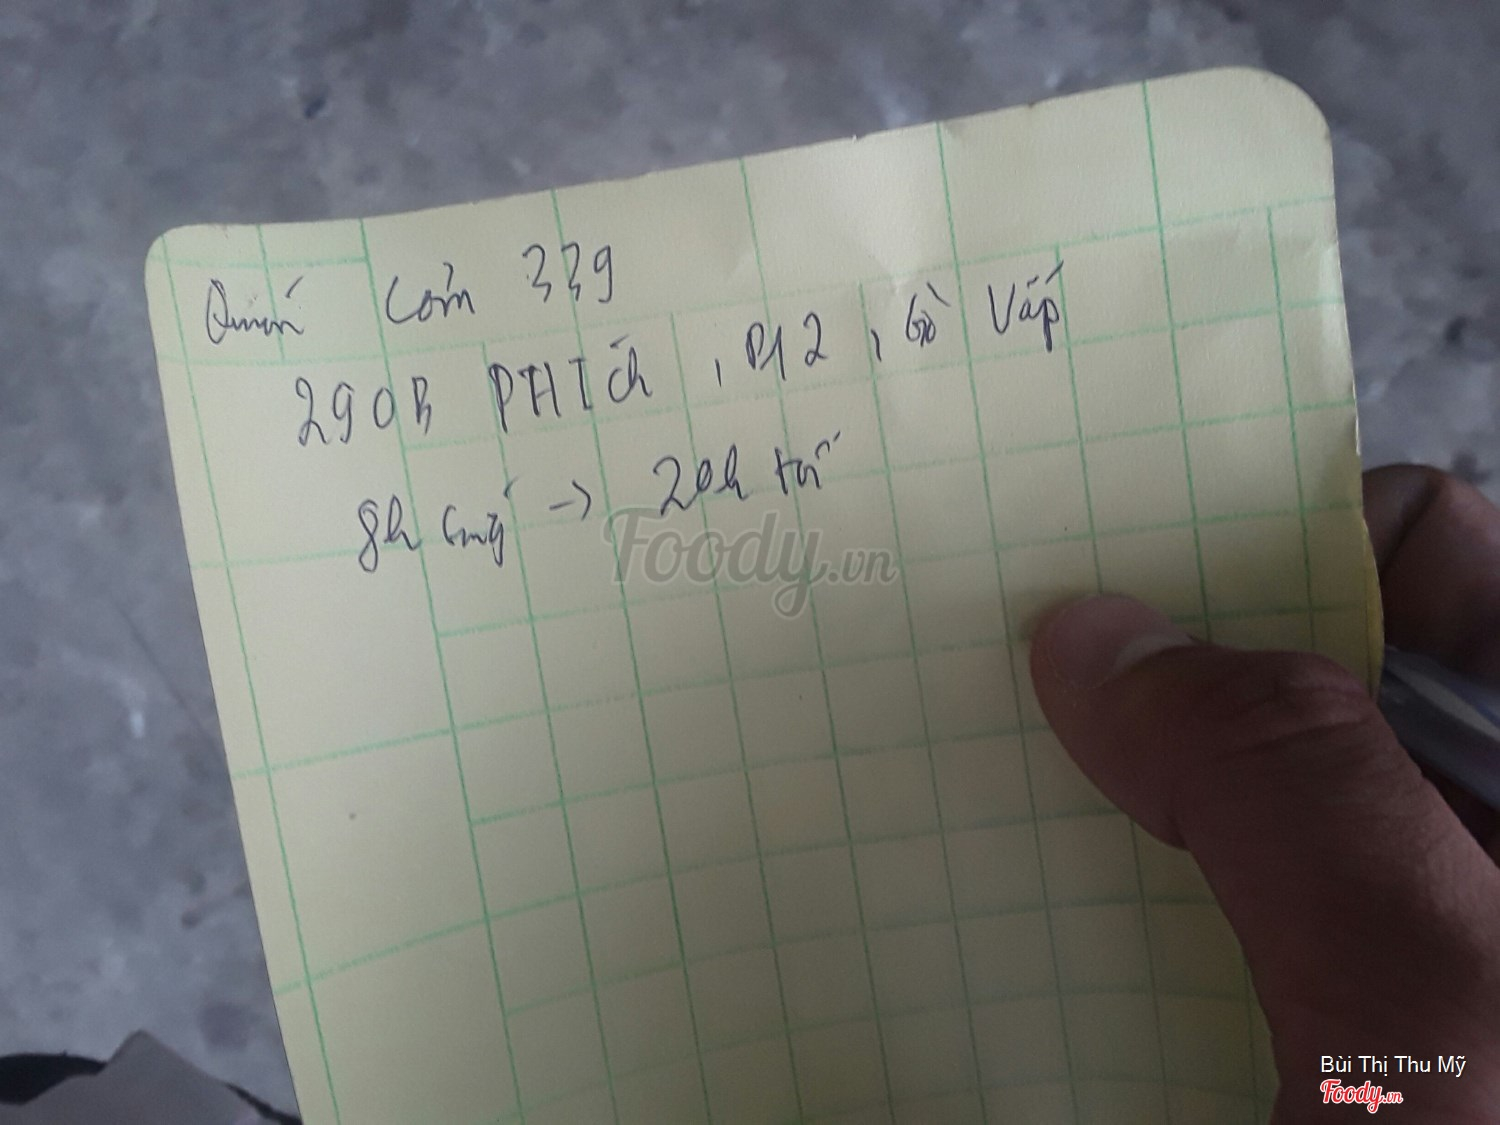 Quán Cơm 339
290B PHÍch, P12, Gò Vấp
8h sáng -> 20h tối
Foody.vn
Bùi Thị Thu Mỹ
Foody.vn